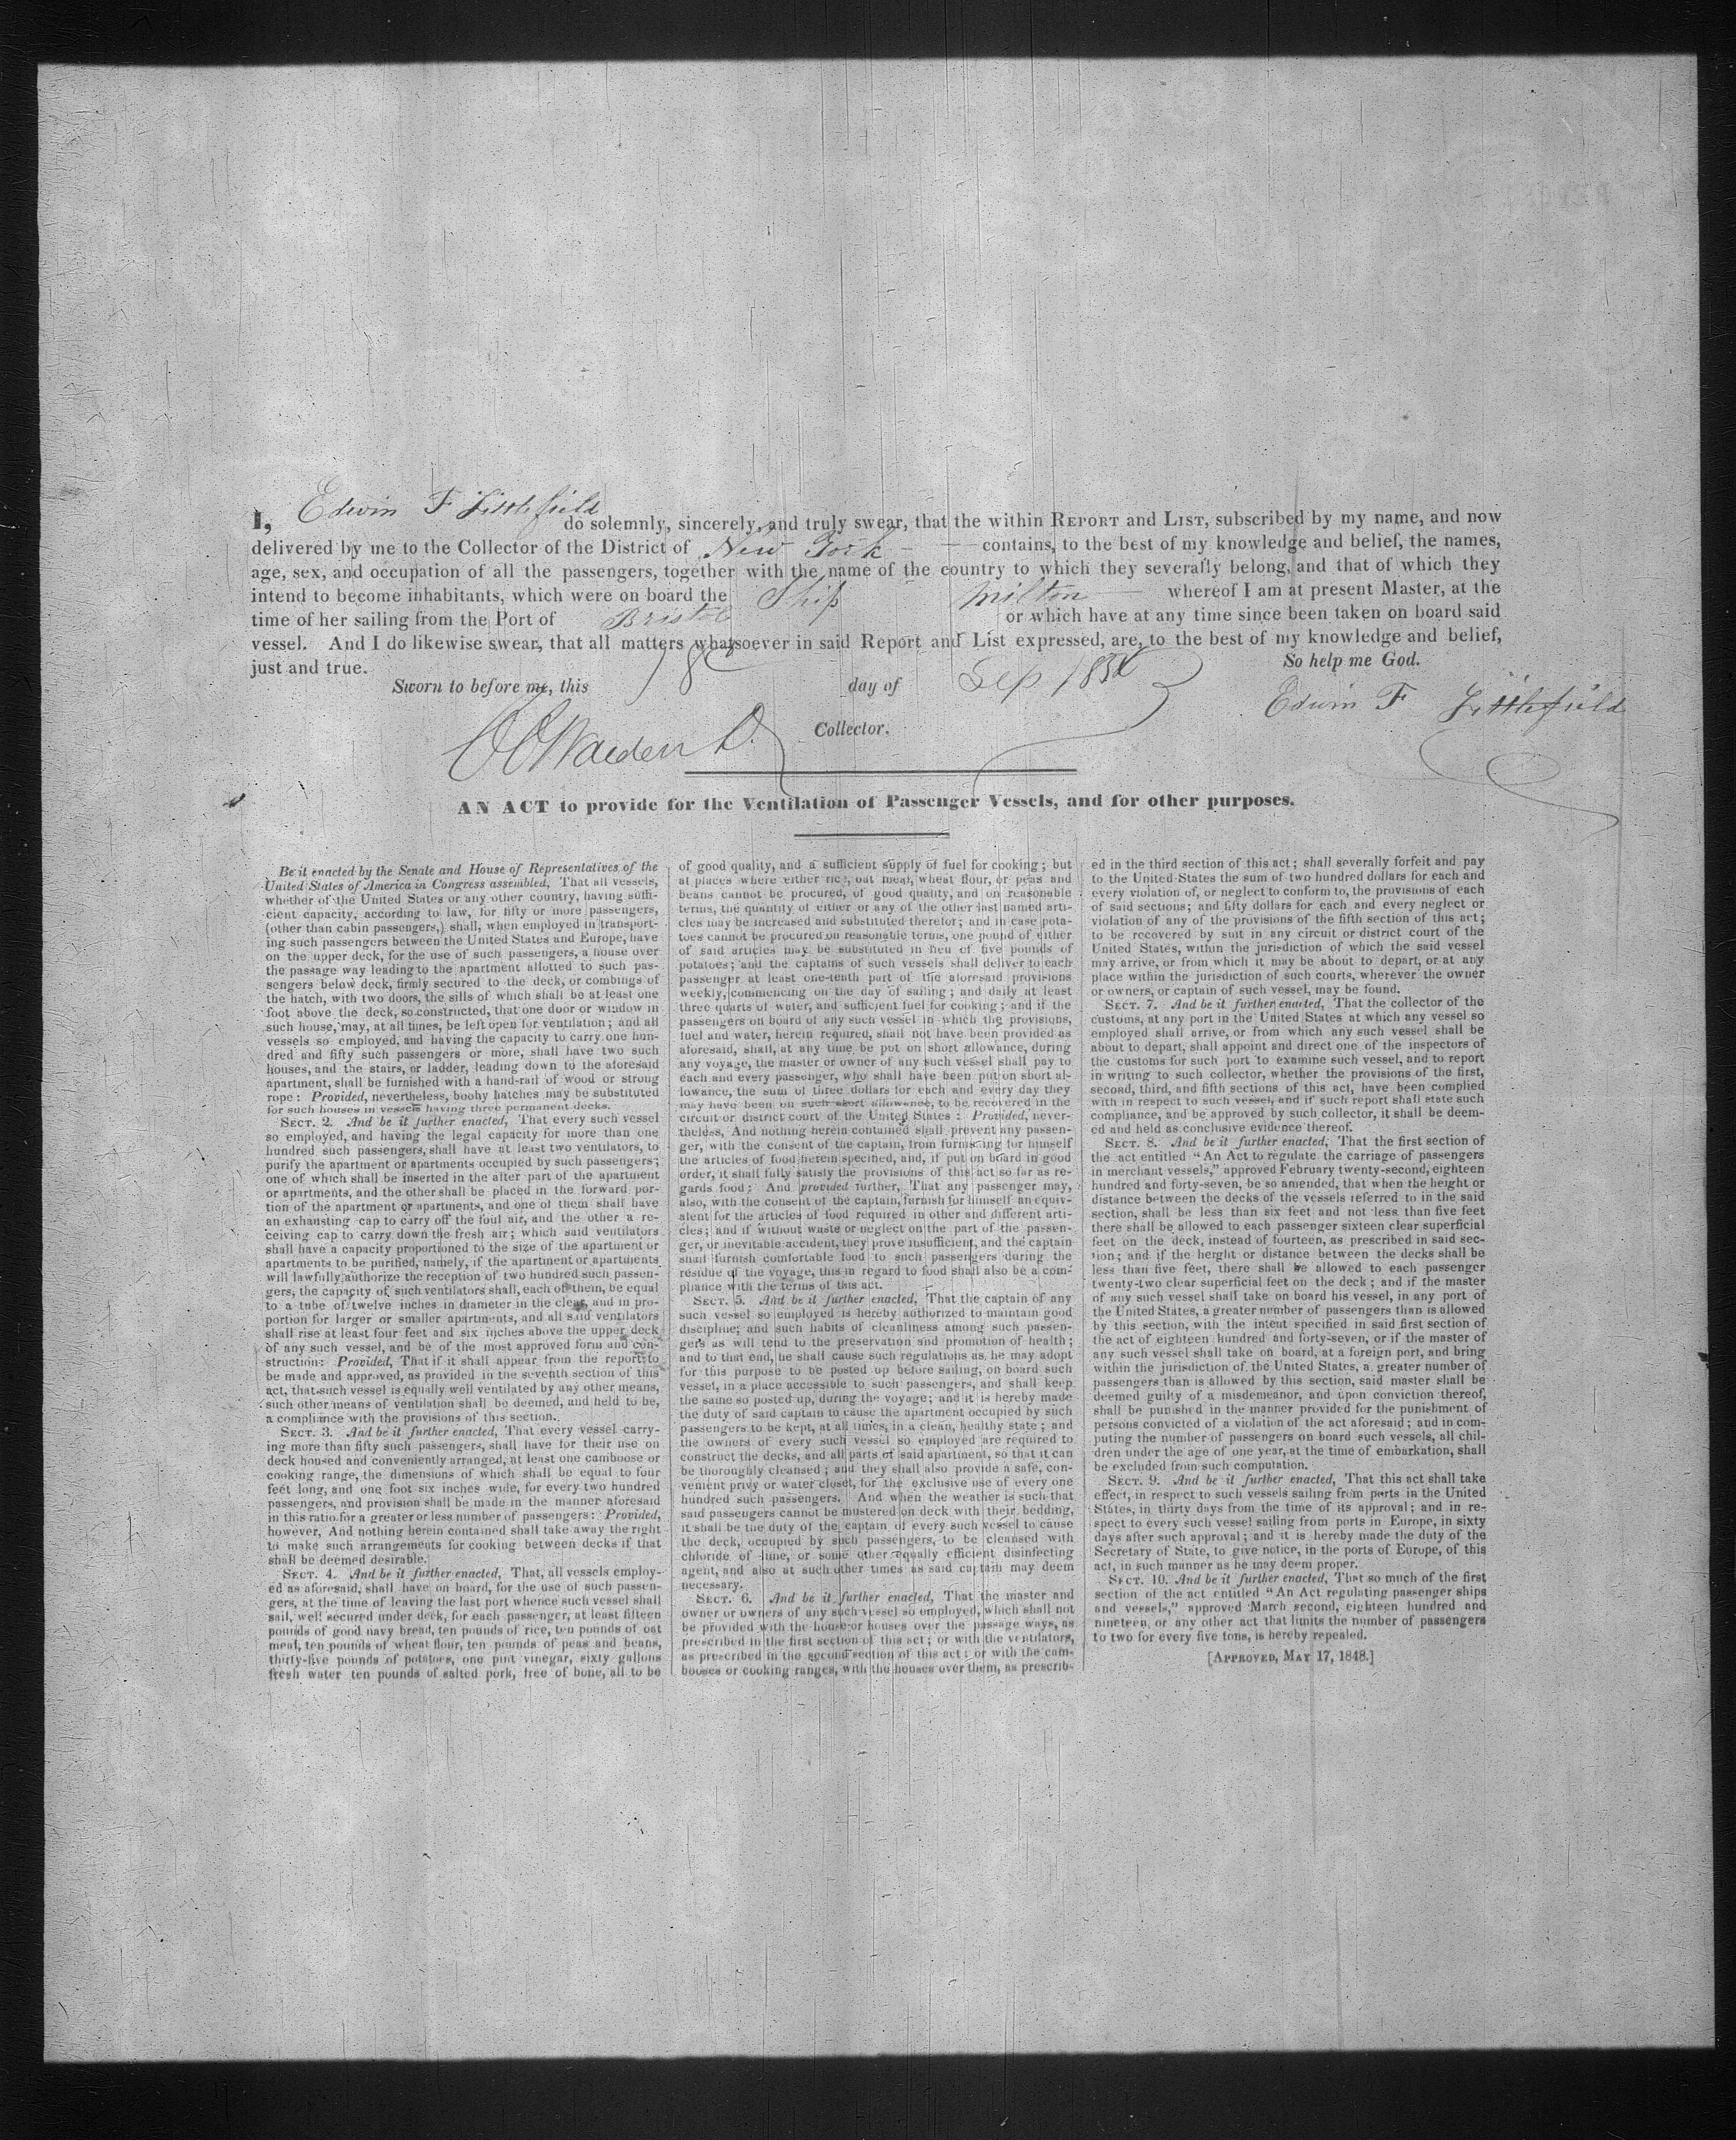 I, Edwin F Littlefield do solemnly, sincerely, and truly swear, that the within REPORT and LIST, subscribed by my name, and now
delivered by me to the Collector of the District of New York contains, to the best of my knowledge and belief, the names,
age, sex, and occupation of all the passengers, together with the name of the country to which they severally belong, and that of which they
intend to become inhabitants, which were on board the Ship Milton whereof I am at present Master, at the
time of her sailing from the Port of Bristol or which have at any time since been taken on board said
vessel. And I do likewise swear, that all matters whatsoever in said Report and List expressed, are, to the best of my knowledge and belief,
just and true. So help me God.
Sworn to before me, this 18 day of Sep
Edwin F Littlefield
Collector.
AN ACT to provide for the Ventilation of Passenger Vessels, and for other purposes.
Be it enacted by the Senate and House of Representatives of the
United States of America in Congress assembled, That all vessels,
whether of the United States or any other country, having suffi-
cient capacity, according to law, for fifty or more passengers,
(other than cabin passengers,) shall, when employed in transport-
ing such passengers between the United States and Europe, have
on the upper deck, for the use of such passengers, a house over
the passage way leading to the apartment allotted to such pas-
sengers below deck, firmly secured to the deck, or combings of
the hatch, with two doors, the sills of which shall be at least one
foot above the deck, so constructed, that one door or window in
such house, may, at all times, be left open for ventilation; and all
vessels so employed, and having the capacity to carry one hun-
dred and fifty such passengers or more, shall have two such
houses, and the stairs, or ladder, leading down to the aforesaid
apartment, shall be furnished with a hand-rail of wood or strong
rope: Provided, nevertheless, booby hatches may be substituted
for such houses in vessels having three permanent decks.
SECT. 2. And be it further enacted, That every such vessel
so employed, and having the legal capacity for more than one
hundred such passengers, shall have at least two ventilators, to
purify the apartment or apartments occupied by such passengers;
one of which shall be inserted in the after part of the apartment
or apartments, and the other shall be placed in the forward por-
tion of the apartment or apartments, and one of them shall have
an exhausting cap to carry off the foul air, and the other a re-
ceiving cap to carry down the fresh air; which said ventilators
shall have a capacity proportioned to the size of the apartment or
apartments to be purified, namely, if the apartment or apartments
will lawfully authorize the reception of two hundred such passen-
gers, the capacity of such ventilators shall, each of them, be equal
to a tube of twelve inches in diameter in the clear, and in pro-
portion for larger or smaller apartments, and all said ventilators
shall rise at least four feet and six inches above the upper deck
of any such vessel, and be of the most approved form and con-
struction: Provided, That if it shall appear from the report, to
be made and approved, as provided in the seventh section of this
act, that such vessel is equally well ventilated by any other means,
such other means of ventilation shall be deemed, and held to be,
a compliance with the provisions of this section.
SECT. 3. And be it further enacted, That every vessel carry-
ing more than fifty such passengers, shall have for their use on
deck housed and conveniently arranged, at least one camboose or
cooking range, the dimensions of which shall be equal to four
feet long, and one foot six inches wide, for every two hundred
passengers, and provision shall be made in the manner aforesaid
in this ratio for a greater or less number of passengers: Provided,
however, And nothing herein contained shall take away the right
to make such arrangements for cooking between decks if that
shall be deemed desirable.
SECT. 4. And be it further enacted, That, all vessels employ-
ed as aforesaid, shall have on board, for the use of such passen-
gers, at the time of leaving the last port whence such vessel shall
sail, well secured under deck, for each passenger, at least fifteen
pounds of good navy bread, ten pounds of rice, ten pounds of oat
meal, ten pounds of wheat flour, ten pounds of peas and beans,
thirty-five pounds of potatoes, one pint vinegar, sixty gallons
fresh water ten pounds of salted pork, free of bone, all to be
of good quality, and a sufficient supply of fuel for cooking; but
at places where either rice, oat meal, wheat flour, or peas and
beans cannot be procured, of good quality, and on reasonable
terms, the quantity of either or any of the other last named arti-
cles may be increased and substituted therefor; and in case pota-
toes cannot be procured on reasonable terms, one pound of either
of said articles may be substituted in lieu of five pounds of
potatoes; and the captains of such vessels shall deliver to each
passenger at least one-tenth part of the aforesaid provisions
weekly, commencing on the day of sailing; and daily at least
three quarts of water, and sufficient fuel for cooking; and if the
passengers on board of any such vessel in which the provisions,
fuel and water, herein required, shall not have been provided as
aforesaid, shall, at any time be put on short allowance, during
any voyage, the master or owner of any such vessel shall pay to
each and every passenger, who shall have been put on short al-
lowance, the sum of three dollars for each and every day they
may have been on such short allowance, to be recovered in the
circuit or district court of the United States: Provided, never-
theless, And nothing herein contained shall prevent any passen-
ger, with the consent of the captain, from furnishing for himself
the articles of food herein specified, and, if put on board in good
order, it shall fully satisfy the provisions of this act so far as re-
gards food: And provided further, That any passenger may,
also, with the consent of the captain, furnish for himself an equiv-
alent for the articles of food required in other and different arti-
cles; and if without waste or neglect on the part of the passen-
ger, or inevitable accident, they prove insufficient, and the captain
shall furnish comfortable food to such passengers during the
residue of the voyage, this in regard to food shall also be a com-
pliance with the terms of this act.
SECT. 5. And be it further enacted, That the captain of any
such vessel so employed is hereby authorized to maintain good
discipline; and such habits of cleanliness among such passen-
gers as will tend to the preservation and promotion of health;
and to that end, he shall cause such regulations as he may adopt
for this purpose to be posted up before sailing, on board such
vessel, in a place accessible to such passengers, and shall keep
the same so posted up, during the voyage; and it is hereby made
the duty of said captain to cause the apartment occupied by such
passengers to be kept, at all times, in a clean, healthy state; and
the owners of every such vessel so employed are required to
construct the decks, and all parts of said apartment, so that it can
be thoroughly cleansed; and they shall also provide a safe, con-
venient privy or water closet, for the exclusive use of every one
hundred such passengers. And when the weather is such that
said passengers cannot be mustered on deck with their bedding,
it shall be the duty of the captain of every such vessel to cause
the deck, occupied by such passengers, to be cleansed with
chloride of lime, or some other equally efficient disinfecting
agent, and also at such other times as said captain may deem
necessary.
SECT. 6. And be it further enacted, That the master and
owner or owners of any such vessel so employed, which shall not
be provided with the house or houses over the passage ways, as
prescribed in the first section of this act; or with the ventilators,
as prescribed in the second section of this act; or with the cam-
booses or cooking ranges, with the houses over them, as prescrib-
ed in the third section of this act; shall severally forfeit and pay
to the United States the sum of two hundred dollars for each and
every violation of, or neglect to conform to, the provisions of each
of said sections; and fifty dollars for each and every neglect or
violation of any of the provisions of the fifth section of this act;
to be recovered by suit in any circuit or district court of the
United States, within the jurisdiction of which the said vessel
may arrive, or from which it may be about to depart, or at any
place within the jurisdiction of such courts, wherever the owner
or owners, or captain of such vessel, may be found.
SECT. 7. And be it further enacted, That the collector of the
customs, at any port in the United States at which any vessel so
employed shall arrive, or from which any such vessel shall be
about to depart, shall appoint and direct one of the inspectors of
the customs for such port to examine such vessel, and to report
in writing to such collector, whether the provisions of the first,
second, third, and fifth sections of this act, have been complied
with in respect to such vessel, and if such report shall state such
compliance, and be approved by such collector, it shall be deem-
ed and held as conclusive evidence thereof.
SECT. 8. And be it further enacted, That the first section of
the act entitled "An Act to regulate the carriage of passengers
in merchant vessels," approved February twenty-second, eighteen
hundred and forty-seven, be so amended, that when the height or
distance between the decks of the vessels referred to in the said
section, shall be less than six feet and not less than five feet
there shall be allowed to each passenger sixteen clear superficial
feet on the deck, instead of fourteen, as prescribed in said sec-
tion; and if the height or distance between the decks shall be
less than five feet, there shall be allowed to each passenger
twenty-two clear superficial feet on the deck; and if the master
of any such vessel shall take on board his vessel, in any port of
the United States, a greater number of passengers than is allowed
by this section, with the intent specified in said first section of
the act of eighteen hundred and forty-seven, or if the master of
any such vessel shall take on board, at a foreign port, and bring
within the jurisdiction of the United States, a greater number of
passengers than is allowed by this section, said master shall be
deemed guilty of a misdemeanor, and upon conviction thereof,
shall be punished in the manner provided for the punishment of
persons convicted of a violation of the act aforesaid; and in com-
puting the number of passengers on board such vessels, all chil-
dren under the age of one year, at the time of embarkation, shall
be excluded from such computation.
SECT. 9. And be it further enacted, That this act shall take
effect, in respect to such vessels sailing from ports in the United
States, in thirty days from the time of its approval; and in re-
spect to every such vessel sailing from ports in Europe, in sixty
days after such approval; and it is hereby made the duty of the
Secretary of State, to give notice, in the ports of Europe, of this
act, in such manner as he may deem proper.
SECT. 10. And be it further enacted, That so much of the first
section of the act entitled "An Act regulating passenger ships
and vessels," approved March second, eighteen hundred and
nineteen, or any other act that limits the number of passengers
to two for every five tons, is hereby repealed.
[APPROVED, MAY 17, 1848.]